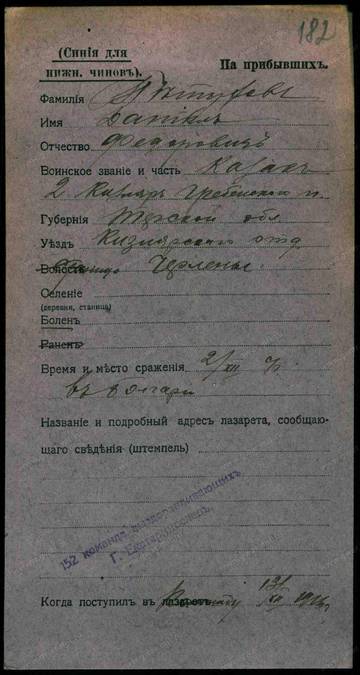 182
(Синія для
нижн. чиновъ).
На прибывшихъ.
Фамилія Пѣтуховъ
Имя Даніилъ
Отчество Федоровичъ
Воинское званіе и часть Казакъ
2. Кизляр. Гребенского п.
Губернія Терской обл
Уѣздъ Кизлярскаго отд
Волость Черлены.
Селеніе
(деревня, станица)
Боленъ
Раненъ
Время и мѣсто сраженія 2/XII
въ
Названіе и подробный адресъ лазарета, сообщаю-
щаго свѣдѣнія (штемпель)
152 команда выздоравливающихъ
Г. Екатеринославъ
Когда поступилъ въ лазаретъ XII